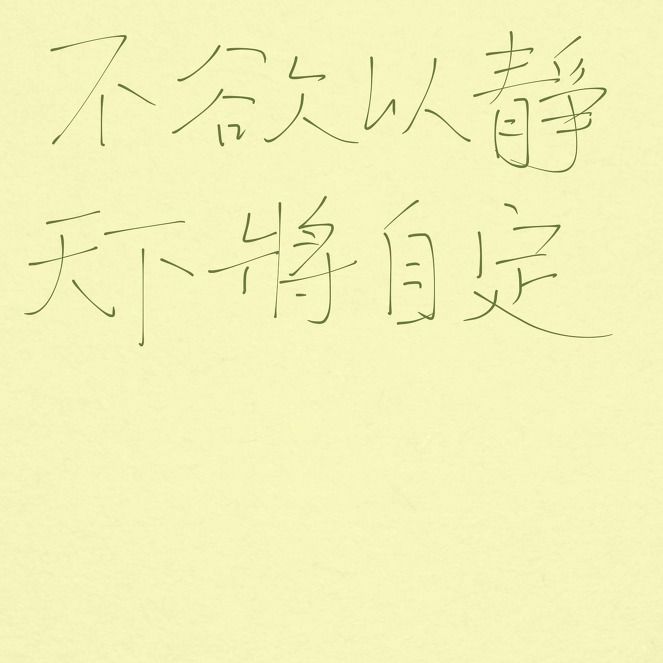 不欲以靜
天下將自定